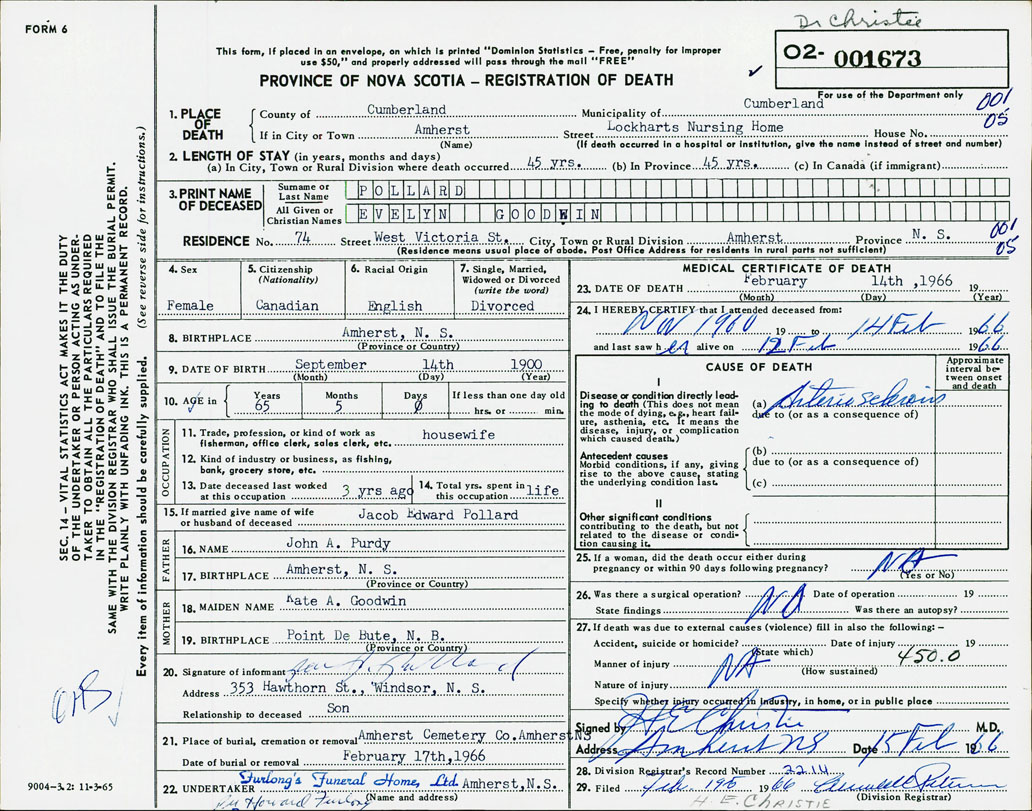 Dr Christie
FORM 6
O2- 001673
This form, if placed in an envelope, on which is printed "Dominion Statistics – Free, penalty for improper
use $50," and properly addressed will pass through the mail "FREE"
PROVINCE OF NOVA SCOTIA – REGISTRATION OF DEATH
For use of the Department only
001
05
1. PLACE OF DEATH
County of Cumberland Municipality of Cumberland
If in City or Town Amherst Street Lockharts Nursing Home House No.
(Name) (If death occurred in a hospital or institution, give the name instead of street and number)
2. LENGTH OF STAY (in years, months and days)
(a) In City, Town or Rural Division where death occurred 45 yrs. (b) In Province 45 yrs. (c) In Canada (if immigrant)
3. PRINT NAME OF DECEASED
Surname or Last Name POLLARD
All Given or Christian Names EVELYN GOODWIN
RESIDENCE No. 74 Street West Victoria St. City, Town or Rural Division Amherst Province N. S.
(Residence means usual place of abode. Post Office Address for residents in rural parts not sufficient)
001
05
4. Sex
Female
5. Citizenship
(Nationality)
Canadian
6. Racial Origin
English
7. Single, Married,
Widowed or Divorced
(write the word)
Divorced
8. BIRTHPLACE Amherst, N. S.
(Province or Country)
9. DATE OF BIRTH September 14th 1900
(Month) (Day) (Year)
10. AGE in Years 65 Months 5 Days 0 If less than one day old
hrs. or min.
OCCUPATION
11. Trade, profession, or kind of work as
fisherman, office clerk, sales clerk, etc. housewife
12. Kind of industry or business, as fishing,
bank, grocery store, etc.
13. Date deceased last worked
at this occupation 3 yrs ago
14. Total yrs. spent in
this occupation life
15. If married give name of wife
or husband of deceased Jacob Edward Pollard
FATHER
16. NAME John A. Purdy
17. BIRTHPLACE Amherst, N. S.
(Province or Country)
MOTHER
18. MAIDEN NAME Kate A. Goodwin
19. BIRTHPLACE Point De Bute, N. B.
(Province or Country)
20. Signature of informant
Address 353 Hawthorn St., Windsor, N. S.
Relationship to deceased Son
21. Place of burial, cremation or removal Amherst Cemetery Co. Amherst NS
Date of burial or removal February 17th, 1966
22. UNDERTAKER Furlong's Funeral Home, Ltd. Amherst, N.S.
(Name and address)
Per Howard Furlong
MEDICAL CERTIFICATE OF DEATH
23. DATE OF DEATH February 14th ,1966 19
(Month) (Day) (Year)
24. I HEREBY CERTIFY that I attended deceased from:
Nov 1960 19 to 14 Feb 1966
and last saw h er alive on 12 Feb 1966
CAUSE OF DEATH
Approximate interval between onset and death
I
Disease or condition directly leading
to death (This does not mean
the mode of dying, e.g., heart failure,
asthenia, etc. It means the
disease, injury, or complication
which caused death.)
(a) Arteriosclerosis
due to (or as a consequence of)
Antecedent causes
Morbid conditions, if any, giving
rise to the above cause, stating
the underlying condition last.
(b)
due to (or as a consequence of)
(c)
II
Other significant conditions
contributing to the death, but not
related to the disease or condition
causing it.
25. If a woman, did the death occur either during
pregnancy or within 90 days following pregnancy? NA
(Yes or No)
26. Was there a surgical operation? NO Date of operation 19
State findings Was there an autopsy?
27. If death was due to external causes (violence) fill in also the following: –
Accident, suicide or homicide? Date of injury 19
(State which) 450.0
Manner of injury NA (How sustained)
Nature of injury
Specify whether injury occurred in Industry, in home, or in public place
Signed by H E Christie M.D.
Address Amherst NS Date 15 Feb 1966
28. Division Registrar's Record Number 2214
29. Filed Feb. 1966
(Division Registrar)
H. E. CHRISTIE
SEC. 14 – VITAL STATISTICS ACT MAKES IT THE DUTY
OF THE UNDERTAKER OR PERSON ACTING AS UNDER-
TAKER TO OBTAIN ALL THE PARTICULARS REQUIRED
IN THE "REGISTRATION OF DEATH" AND TO FILE THE
SAME WITH THE DIVISION REGISTRAR WHO SHALL ISSUE THE BURIAL PERMIT.
WRITE PLAINLY WITH UNFADING INK. THIS IS A PERMANENT RECORD.
Every item of information should be carefully supplied. (See reverse side for instructions.)
9004–3.2: 11-3-65